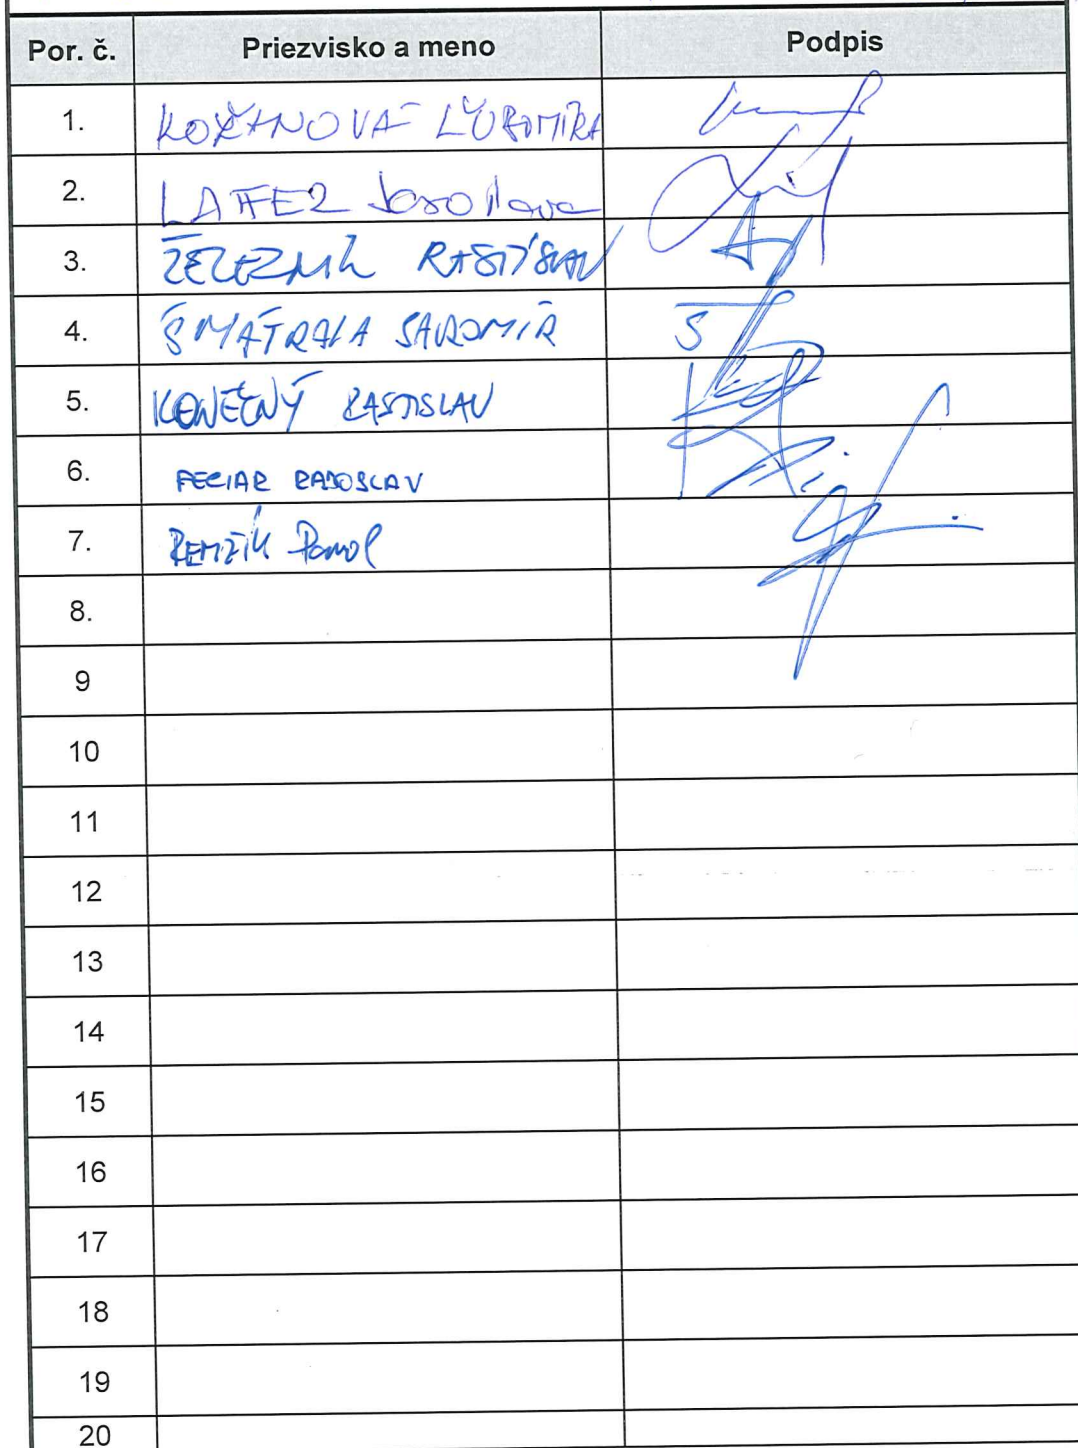 Por. č. Priezvisko a meno Podpis
1. KOŽANOVÁ ĽUBOMÍRA
2. LAFFEZ Jaroslava
3. ŽELEZNÍK RASTISLAV
4. ŠMATRALA JAROMÍR
5. KONEČNÝ RASTISLAV
6. FECIAR RADOSLAV
7. REMZÍK Pavol
8.
9
10
11
12
13
14
15
16
17
18
19
20